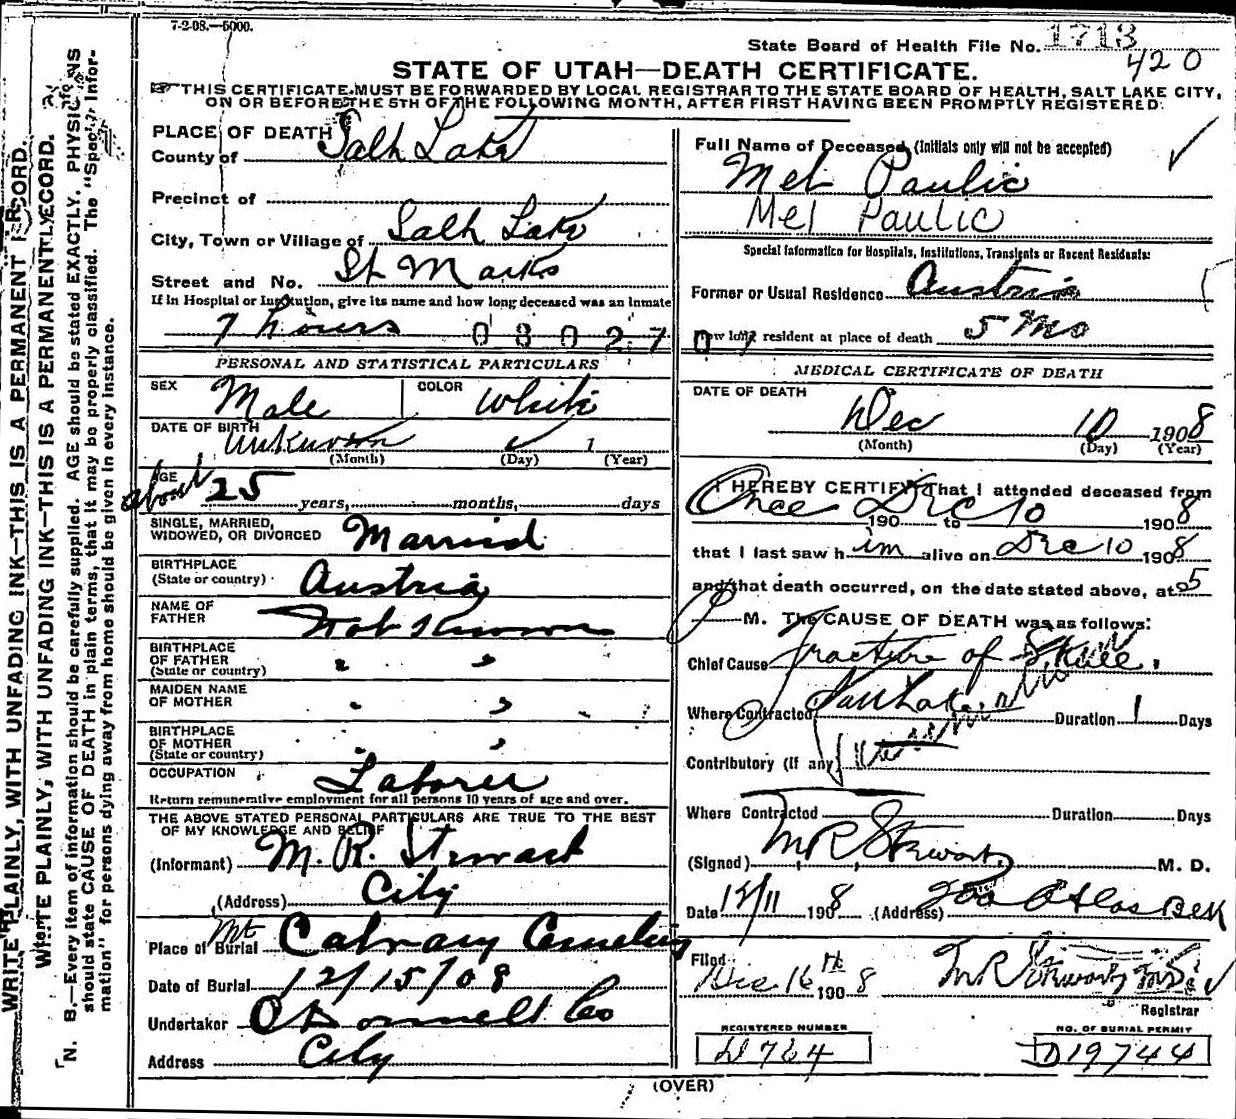 7-2-08.—5000.
State Board of Health File No. 1713
420
STATE OF UTAH—DEATH CERTIFICATE.
THIS CERTIFICATE MUST BE FORWARDED BY LOCAL REGISTRAR TO THE STATE BOARD OF HEALTH, SALT LAKE CITY,
ON OR BEFORE THE 5TH OF THE FOLLOWING MONTH, AFTER FIRST HAVING BEEN PROMPTLY REGISTERED.
PLACE OF DEATH
County of Salt Lake
Precinct of
City, Town or Village of Salt Lake
Street and No. St Marks
If in Hospital or Institution, give its name and how long deceased was an inmate
7 hours 08027
PERSONAL AND STATISTICAL PARTICULARS
SEX Male COLOR White
DATE OF BIRTH Unknown 1
(Month) (Day) (Year)
AGE about 25 years, months, days
SINGLE, MARRIED,
WIDOWED, OR DIVORCED Married
BIRTHPLACE
(State or country) Austria
NAME OF
FATHER Not Known
BIRTHPLACE
OF FATHER " "
(State or country)
MAIDEN NAME
OF MOTHER " "
BIRTHPLACE
OF MOTHER " "
(State or country)
OCCUPATION Laborer
Return remunerative employment for all persons 10 years of age and over.
THE ABOVE STATED PERSONAL PARTICULARS ARE TRUE TO THE BEST
OF MY KNOWLEDGE AND BELIEF
(Informant) M. R. Stewart
(Address) City
Place of Burial Mt Calvary Cemetery
Date of Burial 12/15/08
Undertaker O'Donnell Co
Address City
Full Name of Deceased (Initials only will not be accepted)
Mel Paulic
Mel Paulic
Special Information for Hospitals, Institutions, Transients or Recent Residents:
Former or Usual Residence Austria
How long resident at place of death 5 Mo
MEDICAL CERTIFICATE OF DEATH
DATE OF DEATH
Dec 10 1908
(Month) (Day) (Year)
I HEREBY CERTIFY That I attended deceased from
Once 190 to Dec 10 1908
that I last saw him alive on Dec 10 1908
and that death occurred, on the date stated above, at 5
P M. The CAUSE OF DEATH was as follows:
Chief Cause Fracture of Skull.
Where Contracted Salt Lake Duration 1 Days
Contributory (If any)
Where Contracted Duration Days
(Signed) M R Stewart M. D.
Date 12/11 1908 (Address) Atlas Blk
Filed
Dec 16th 1908 M R Stewart MD
Registrar
REGISTERED NUMBER
D 764
NO. OF BURIAL PERMIT
D19744
(OVER)
WRITE PLAINLY, WITH UNFADING INK—THIS IS A PERMANENT RECORD.
WRITE PLAINLY, WITH UNFADING INK—THIS IS A PERMANENT RECORD.
N. B.—Every item of information should be carefully supplied. AGE should be stated EXACTLY. PHYSICIANS
should state CAUSE OF DEATH in plain terms, that it may be properly classified. The "Special Infor-
mation" for persons dying away from home should be given in every instance.